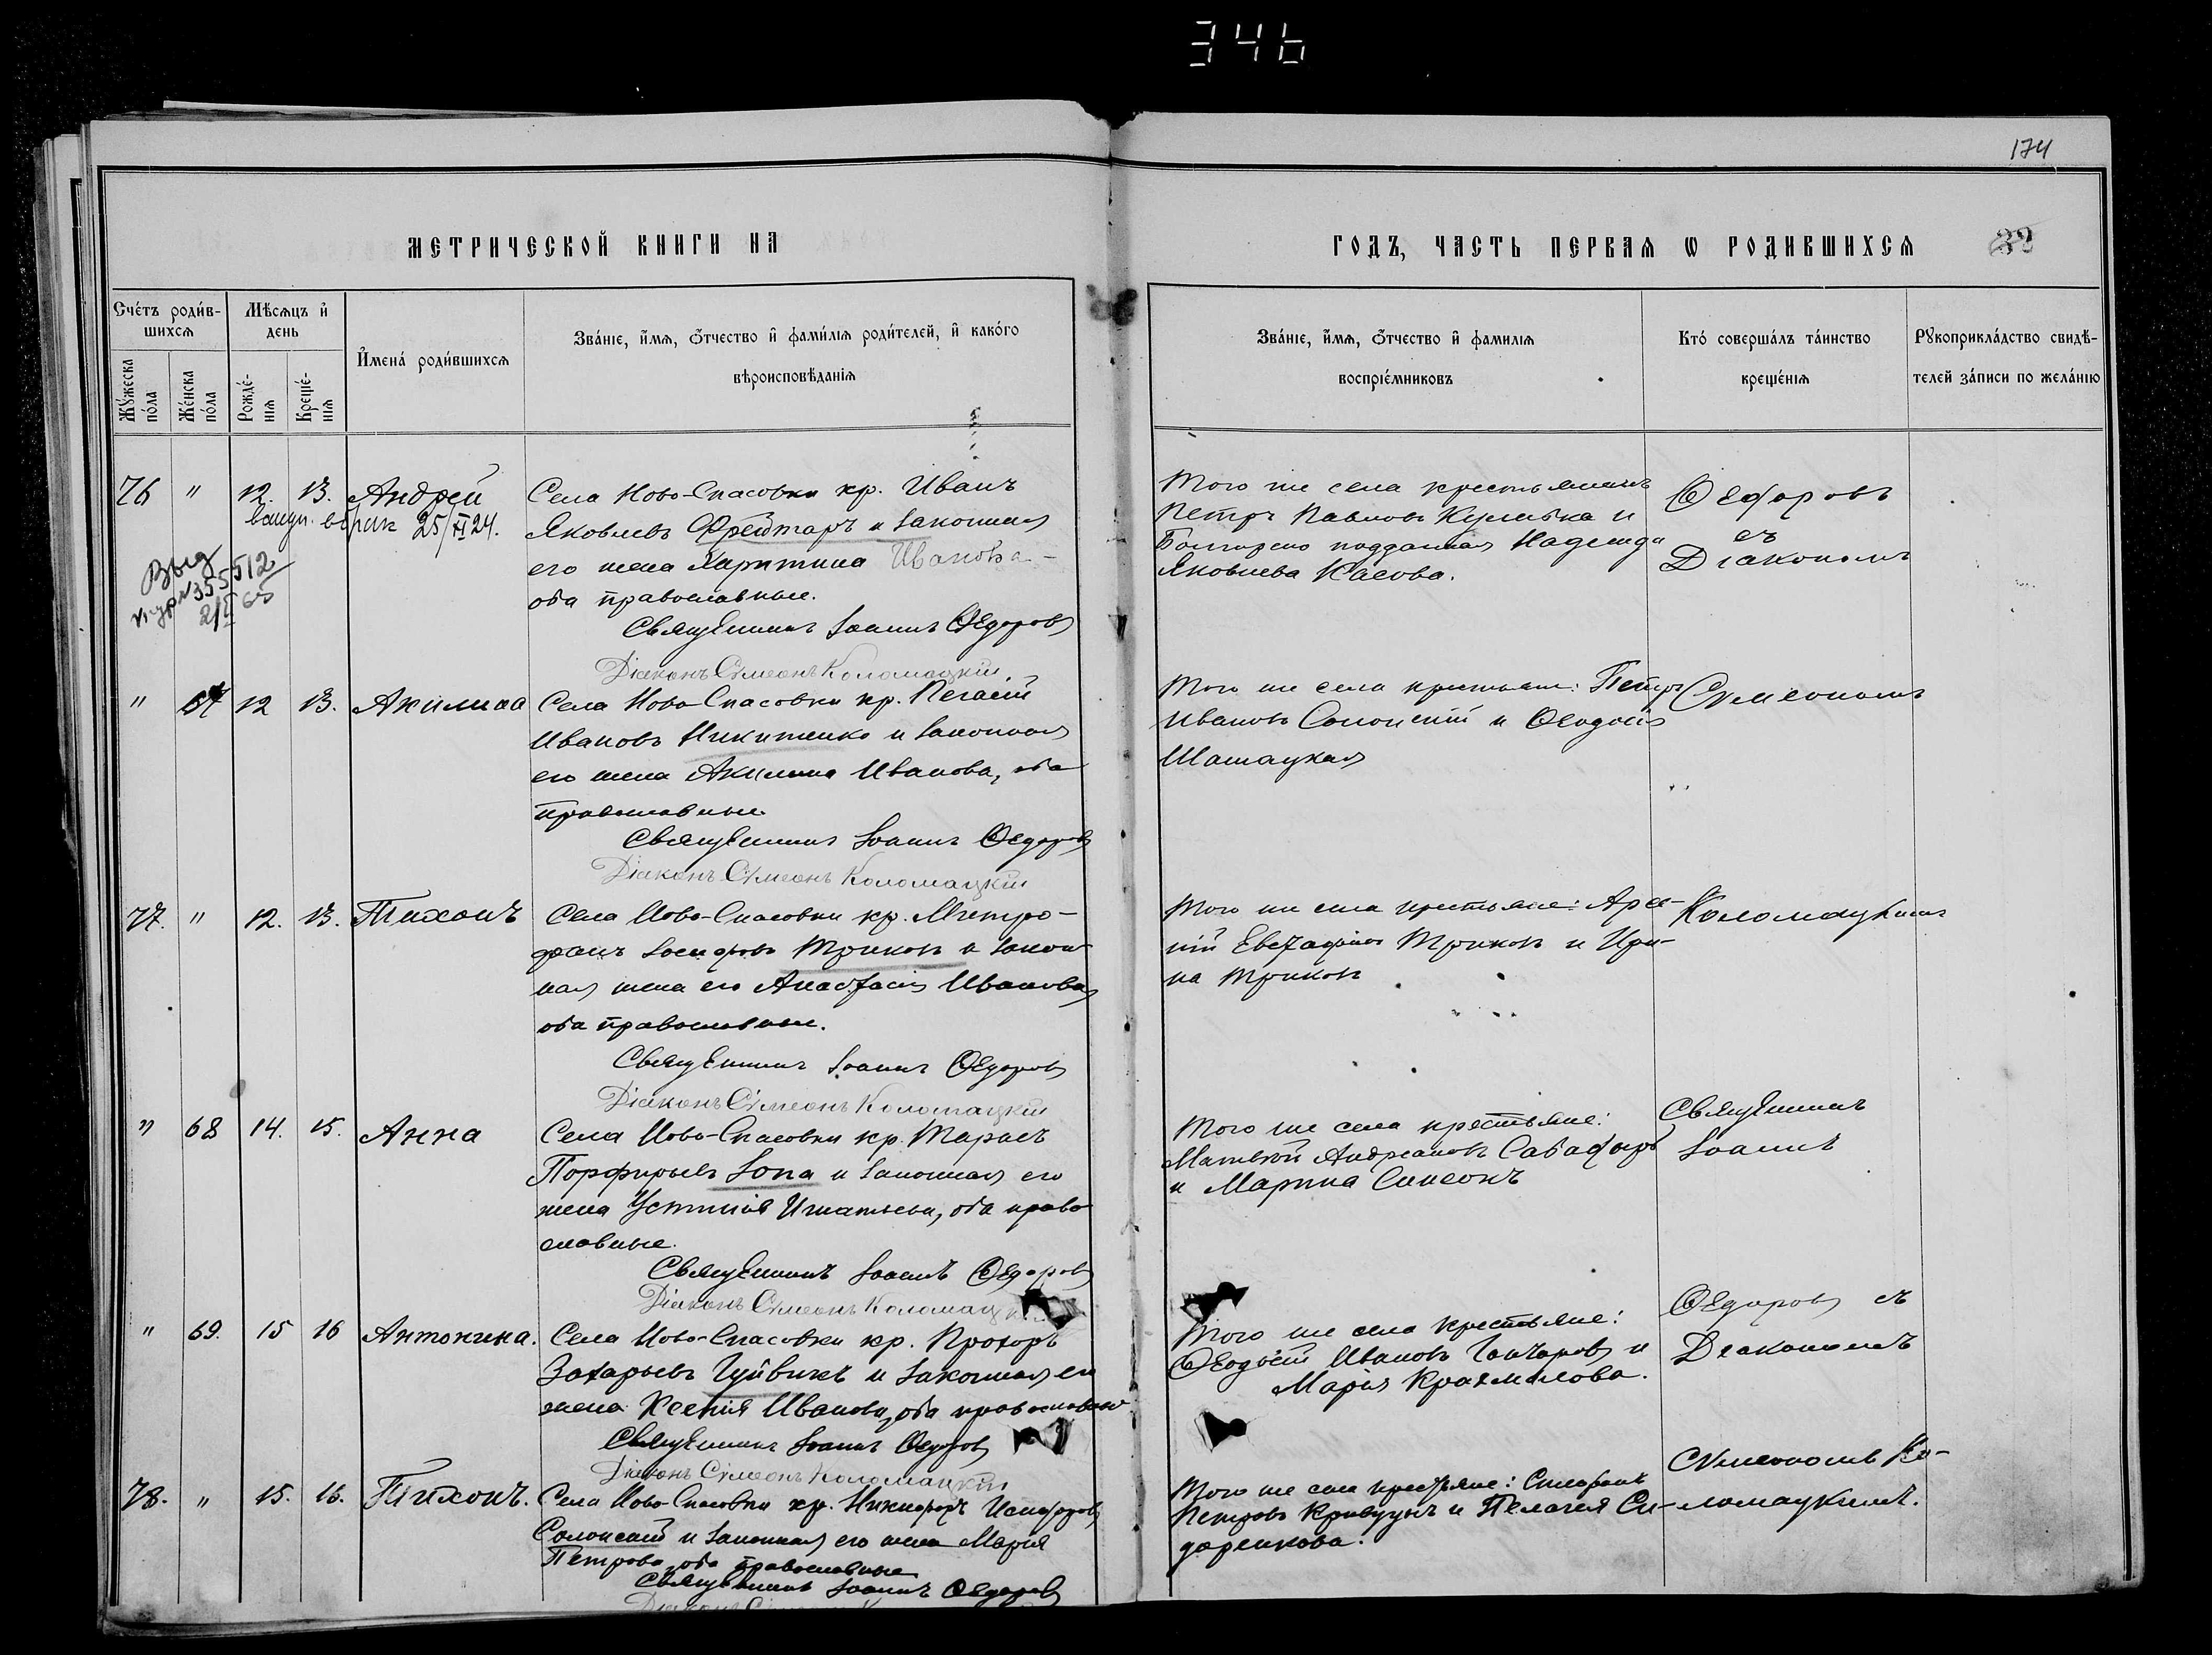 346
174
МЕТРИЧЕСКОЙ КНИГИ НА
ГОДЪ, ЧАСТЬ ПЕРВАЯ Ѡ РОДИВШИХСѦ
32
Счéтъ роди́в-
шихсѧ
Мѣ́сѧцъ и҆
день
Мꙋ́жеска
по́ла
Же́нска
по́ла
Рожде́-
нїѧ
Креще́-
нїѧ
И҆мена́ роди́вшихсѧ
Зва́нїе, и҆́мѧ, ѻ҆́тчество и҆ фами́лїѧ роди́телей, и҆ како́гѡ
вѣроисповѣ́данїѧ
Зва́нїе, и҆́мѧ, ѻ҆́тчество и҆ фами́лїѧ
воспрїе́мниковъ
Кто̀ соверша́лъ та́инство
креще́нїѧ
Рꙋкоприкла́дство свидѣ́-
телей за́писи по жела́нїю
76 " 12. 13. Андрей
25/XI 24.
Выд
355512
Села Ново-Спасовки кр. Иванъ
Яковлевъ Фрейтаръ и законная
его жена Харитина Иванова -
оба православные.
Священникъ Іоаннъ Ѳедоровъ
Діаконъ Сѵмеонъ Коломацкій
Того же села крестьянинъ
Петръ Павловъ Кулибка и
подданная Надежда
Яковлева Касова.
Ѳедоровъ
съ
Діакономъ
" 67 12 13. Акилина
Села Ново-Спасовки кр. Пегасій
Ивановъ Никитенко и законная
его жена Акилина Иванова, оба
православные.
Священникъ Іоаннъ Ѳедоровъ
Діаконъ Сѵмеонъ Коломацкій
Того же села крестьяне: Петръ
Ивановъ Солонскій и Ѳеодосія
Шамацкая
Сѵмеономъ
77. " 12. 13. Тихонъ
Села Ново-Спасовки кр. Митро-
фанъ Іосифовъ Триковъ и закон-
ная жена его Анастасія Иванова,
оба православные.
Священникъ Іоаннъ Ѳедоровъ
Діаконъ Сѵмеонъ Коломацкій
Того же села крестьяне: Арсе-
ній Евстафіевъ Триковъ и Ири-
на Триковъ
Коломацкимъ
" 68 14. 15. Анна
Села Ново-Спасовки кр. Тарасъ
Порфирьевъ Зопа и законная его
жена Устинія Игнатьева, оба право-
славные.
Священникъ Іоаннъ Ѳедоровъ
Діаконъ Сѵмеонъ Коломац
Того же села крестьяне:
Матвѣй Андреановъ Сабадырь
и Марина Синеокъ
Священникъ
Іоаннъ
" 69. 15 16 Антонина.
Села Ново-Спасовки кр. Прохоръ
Захарьевъ Гуйвикъ и законная его
жена Ксенія Иванова, оба православные
Священникъ Іоаннъ Ѳедоровъ
Діаконъ Сѵмеонъ Коломацкій
Того же села крестьяне:
Ѳеодосій Ивановъ Гончаровъ и
Марія Крахмалова.
Ѳедоровъ съ
Діакономъ
78. " 15. 16. Тихонъ.
Села Ново-Спасовки кр. Никифоръ Исидоровъ
Солонскій и законная его жена Марія
Петрова, оба православные
Священникъ Іоаннъ Ѳедоровъ
Того же села крестьяне: Стефанъ
Петровъ Кривуцъ и Пелагея Си-
доренкова.
Сѵмеономъ Ко-
ломацкимъ.